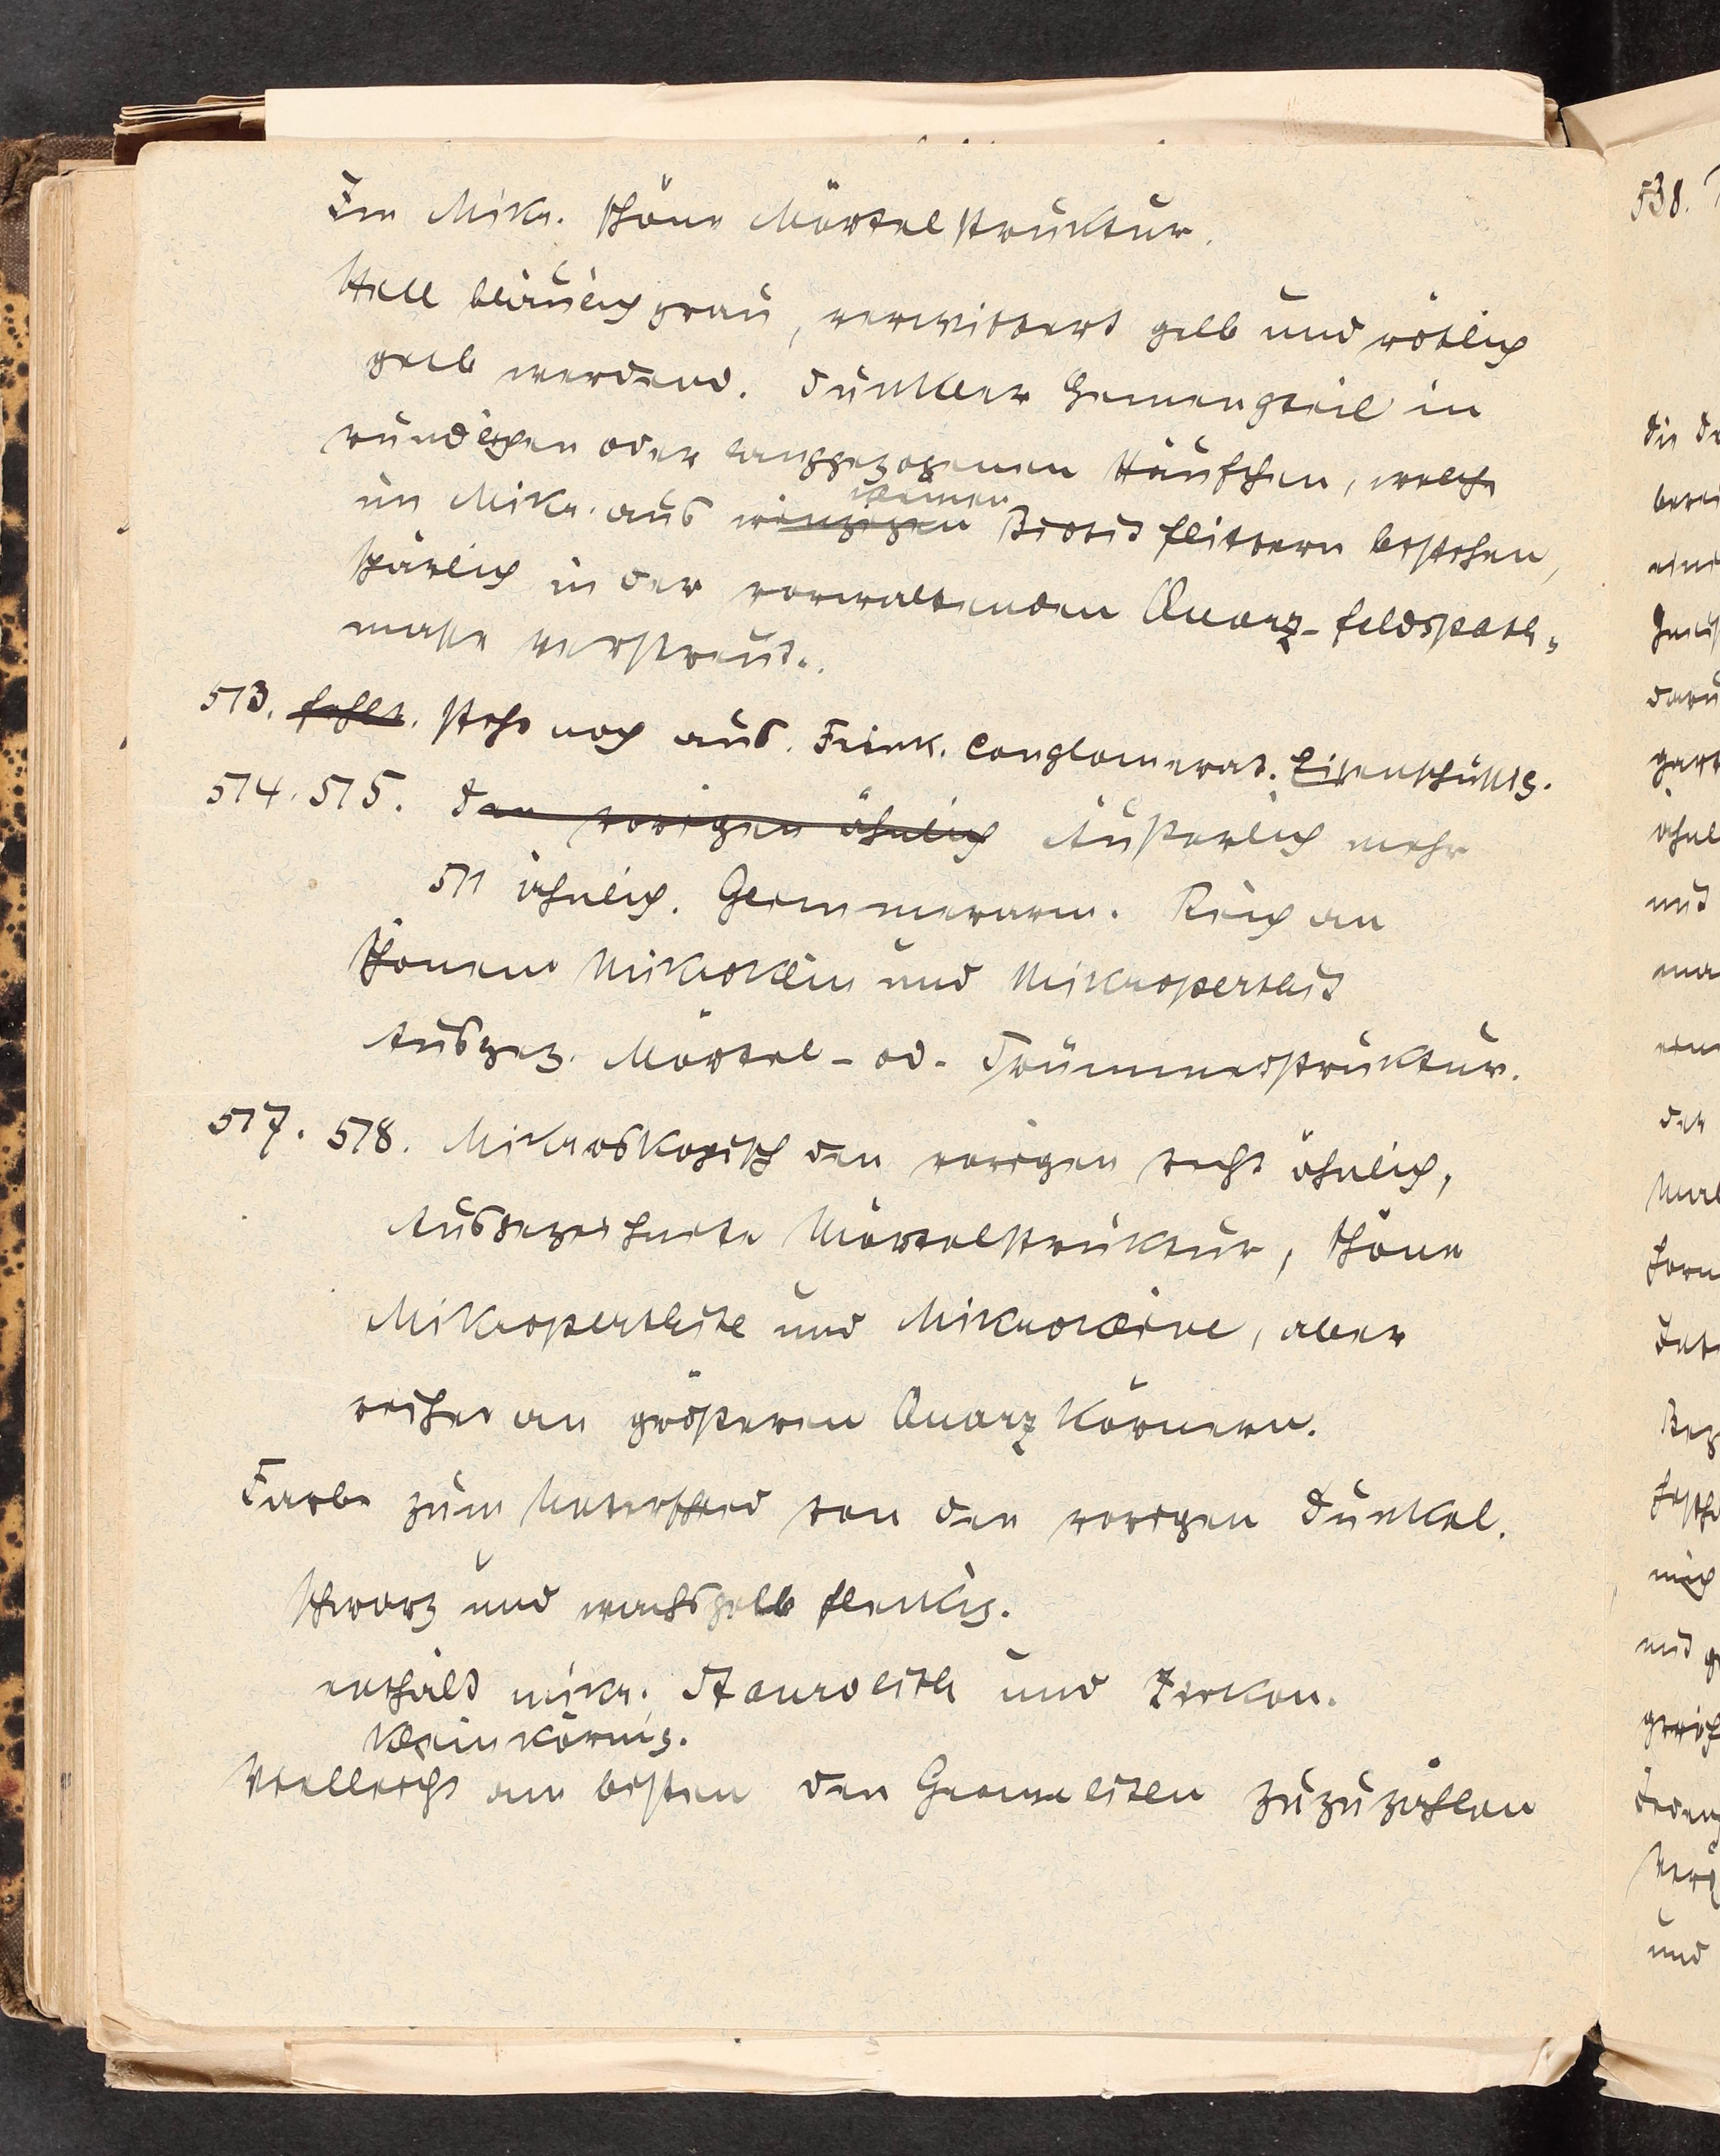 Im Mikr. schöne Mörtelstruktur.
Hell bläulich grau, verwittert gelb und rötlich
gelb werdend. Dunkler Gemengteil in
rundlichen oder langgezogenen Häufchen, welche
kleinen
im Mikr. aus winzigen Biotit flittern bestehen,
spärlich in der vorwaltenden Quarz-feldspath-
masse verstreut.
513. fehlt. steht noch aus. Feink. Conglomerat. Eisenschüssig.
514. 515. Den vorigen ähnlich Äußerlich mehr
511 ähnlich. Glimmerarm. Reich an
schönem Mikroklin und Mikroperthit
Ausgez. Mörtel- od. Trümmerstruktur.
517. 518. Mikroskopisch den vorigen recht ähnlich,
Ausgezeichnete Mörtelstruktur, schöne
Mikroperthite und Mikrokline, aber
reicher an größeren Quarz Körnern.
Farbe zum Unterschied von den vorigen dunkel.
schwarz und wachsgelb fleckig.
enthält mikr. Staurolith und Zirkon.
Kleinkörnig.
Vielleicht am besten den Granuliten zuzuzählen
538.